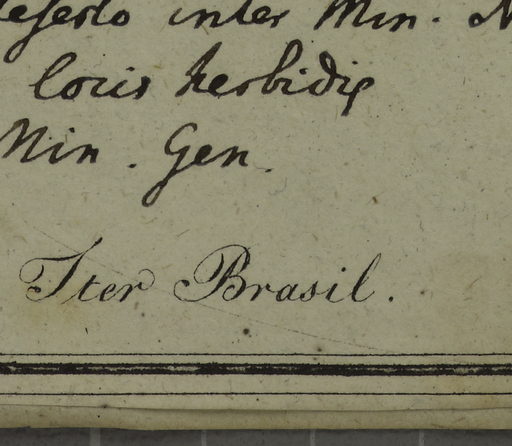 deserto inter Min. N
locis herbidis
Min. Gen.
Iter Brasil.